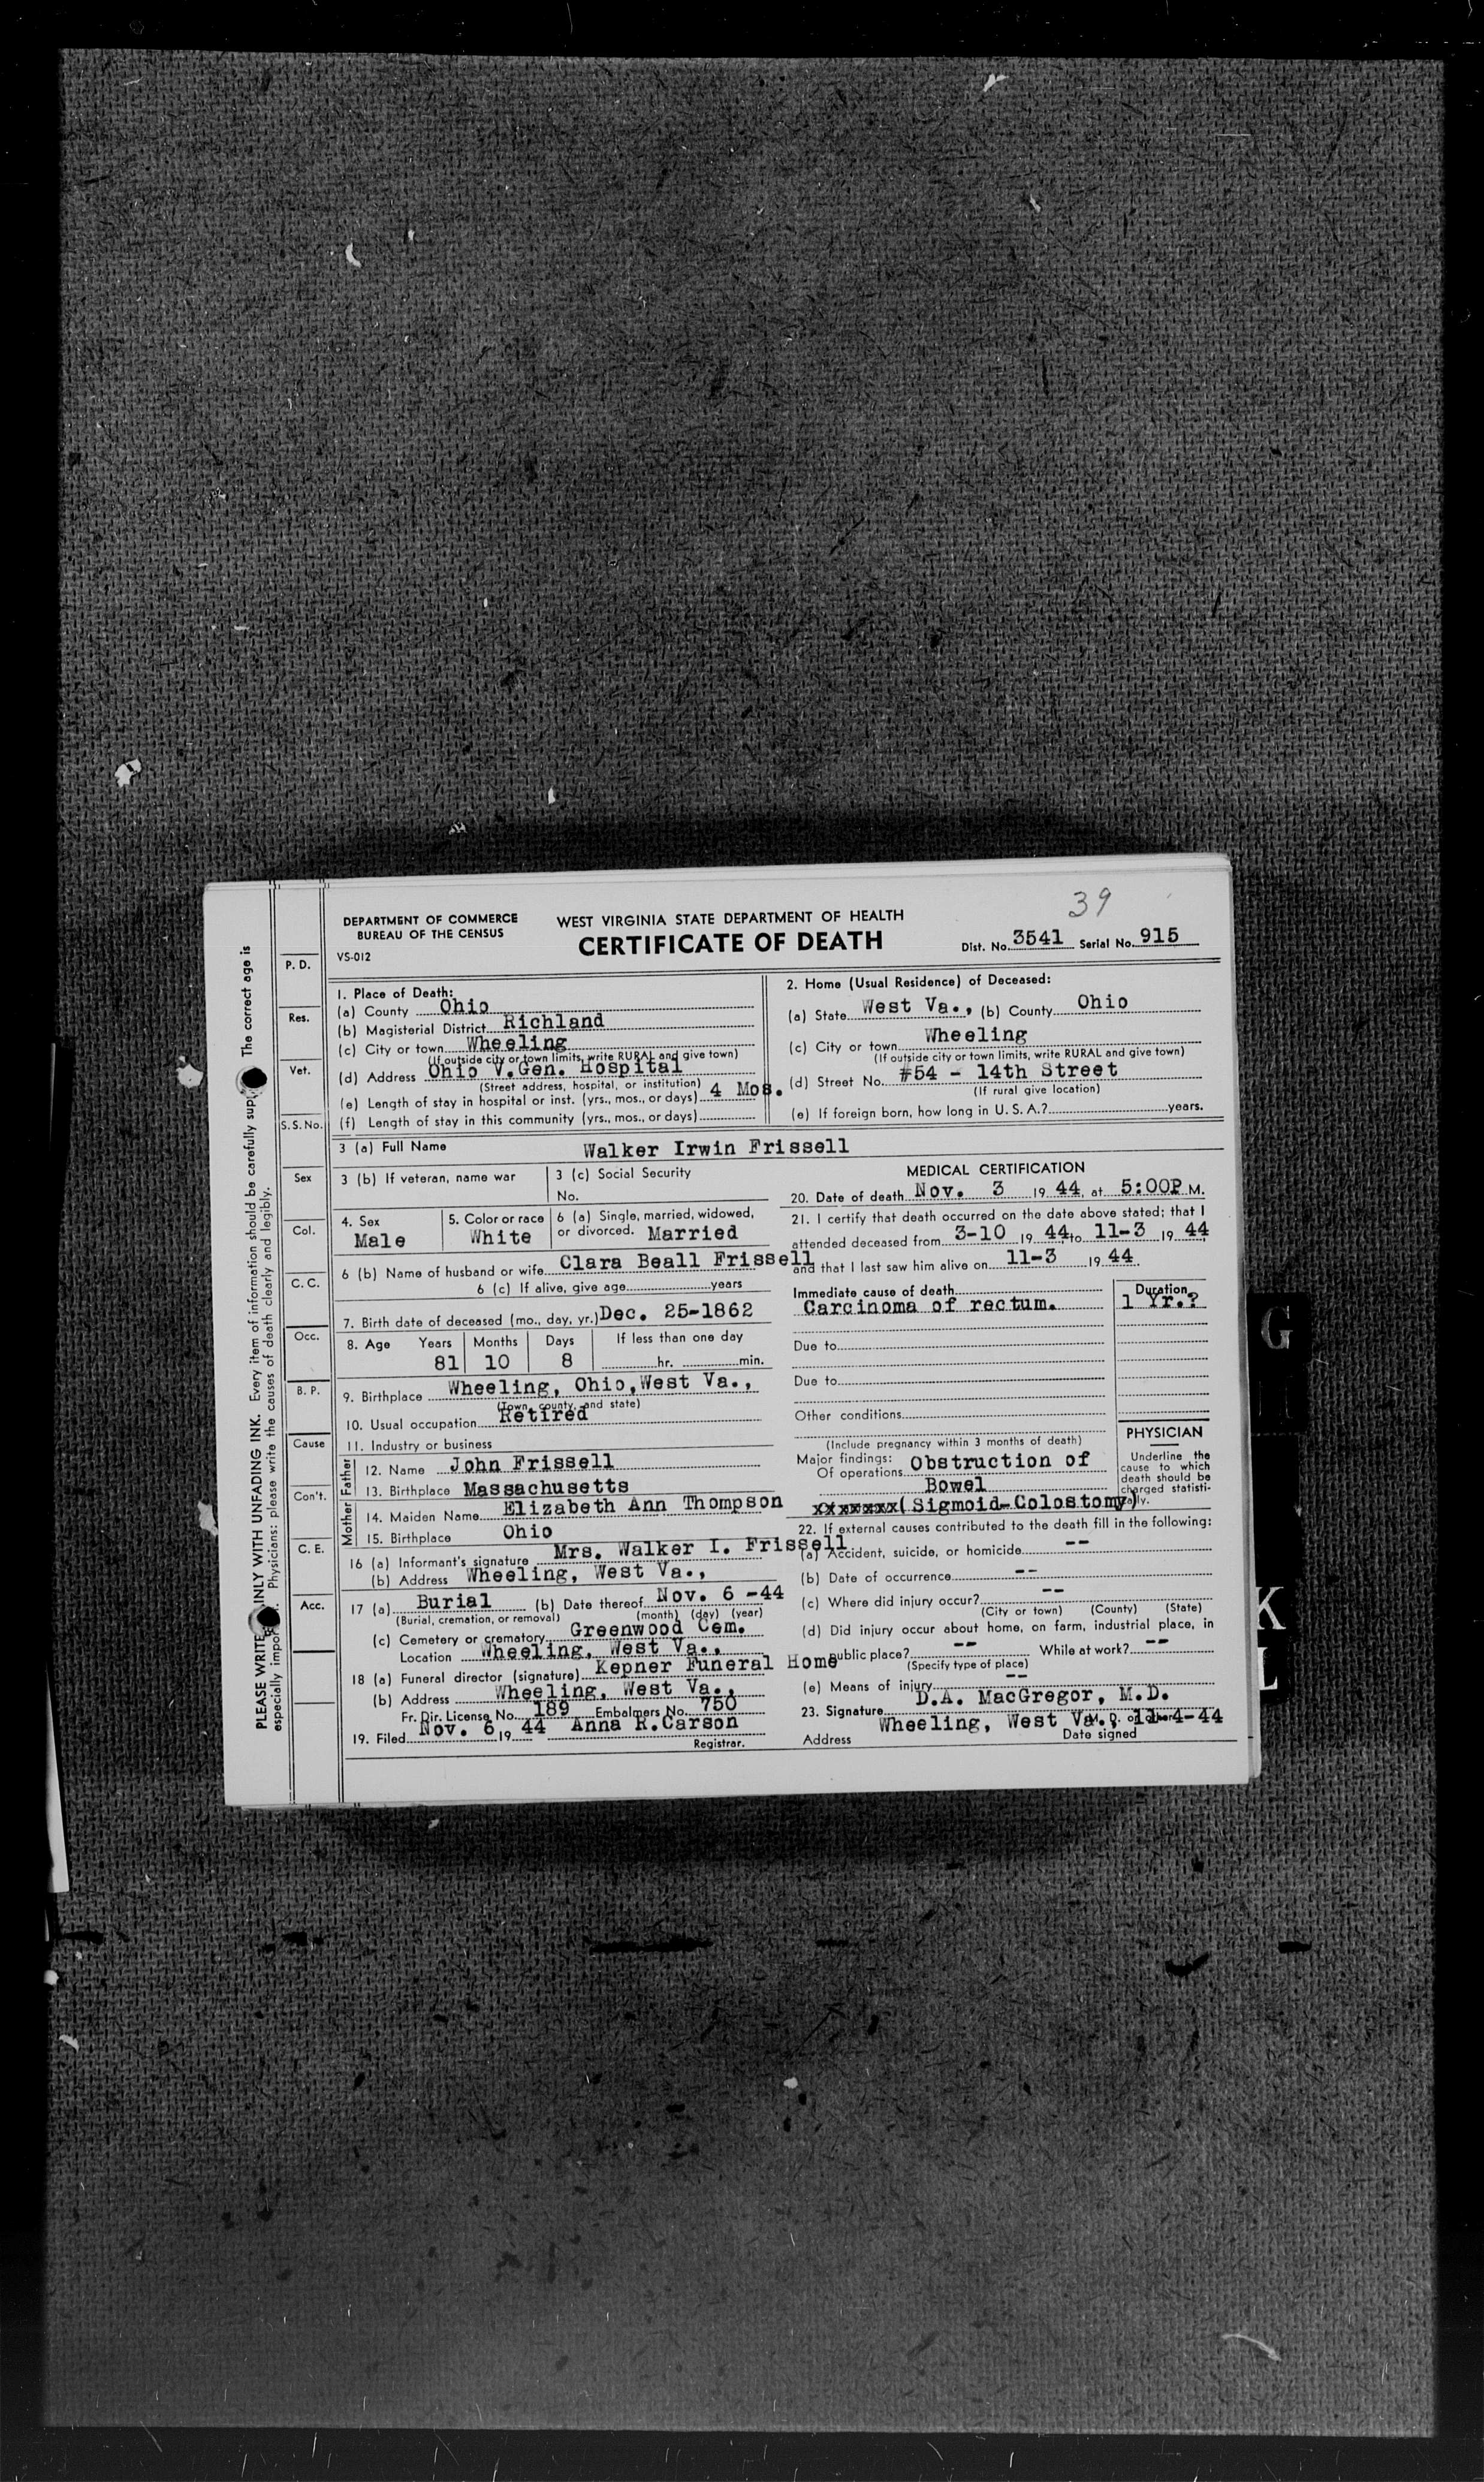 39
DEPARTMENT OF COMMERCE
BUREAU OF THE CENSUS
VS-012
WEST VIRGINIA STATE DEPARTMENT OF HEALTH
CERTIFICATE OF DEATH
Dist. No. 3541 Serial No. 915
1. Place of Death:
(a) County Ohio
(b) Magisterial District Richland
(c) City or town Wheeling
(If outside city or town limits, write RURAL and give town)
(d) Address Ohio V.Gen. Hospital
(Street address, hospital, or institution)
(e) Length of stay in hospital or inst. (yrs., mos., or days) 4 Mos.
(f) Length of stay in this community (yrs., mos., or days)
2. Home (Usual Residence) of Deceased:
(a) State West Va., (b) County Ohio
(c) City or town Wheeling
(If outside city or town limits, write RURAL and give town)
(d) Street No. #54 - 14th Street
(If rural give location)
(e) If foreign born, how long in U. S. A.? years.
3 (a) Full Name Walker Irwin Frissell
3 (b) If veteran, name war
3 (c) Social Security
No.
4. Sex
Male
5. Color or race
White
6 (a) Single, married, widowed,
or divorced. Married
6 (b) Name of husband or wife Clara Beall Frissell
6 (c) If alive, give age years
7. Birth date of deceased (mo., day, yr.) Dec. 25-1862
8. Age Years Months Days If less than one day
81 10 8 hr. min.
9. Birthplace Wheeling, Ohio, West Va.,
(Town, county, and state)
10. Usual occupation Retired
11. Industry or business
Father
12. Name John Frissell
13. Birthplace Massachusetts
Mother
14. Maiden Name Elizabeth Ann Thompson
15. Birthplace Ohio
16 (a) Informant's signature Mrs. Walker I. Frissell
(b) Address Wheeling, West Va.,
17 (a) Burial (b) Date thereof Nov. 6 -44
(Burial, cremation, or removal) (month) (day) (year)
(c) Cemetery or crematory Greenwood Cem.
Location Wheeling, West Va.,
18 (a) Funeral director (signature) Kepner Funeral Home
(b) Address Wheeling, West Va.,
Fr. Dir. License No. 189 Embalmers No. 750
19. Filed Nov. 6, 19 44 Anna R. Carson
Registrar.
MEDICAL CERTIFICATION
20. Date of death Nov. 3 19 44, at 5:00P M.
21. I certify that death occurred on the date above stated; that I
attended deceased from 3-10 19 44 to 11-3 19 44
and that I last saw him alive on 11-3 19 44.
Immediate cause of death Duration
Carcinoma of rectum. 1 Yr.?
Due to
Due to
Other conditions
(Include pregnancy within 3 months of death)
Major findings:
Of operations Obstruction of
Bowel
xxxxxxx(Sigmoid-Colostomy)
PHYSICIAN
Underline the
cause to which
death should be
charged statisti-
cally.
22. If external causes contributed to the death fill in the following:
(a) Accident, suicide, or homicide --
(b) Date of occurrence --
(c) Where did injury occur? --
(City or town) (County) (State)
(d) Did injury occur about home, on farm, industrial place, in
public place? -- While at work? --
(Specify type of place)
(e) Means of injury --
23. Signature D.A. MacGregor, M.D.
M. D. or other
Address Wheeling, West Va., 11-4-44
Date signed
P. D.
Res.
Vet.
S. S. No.
Sex
Col.
C. C.
Occ.
B. P.
Cause
Con't.
C. E.
Acc.
PLEASE WRITE INLY WITH UNFADING INK. Every item of information should be carefully sup The correct age is
especially impor Physicians: please write the causes of death clearly and legibly.
G
K
L